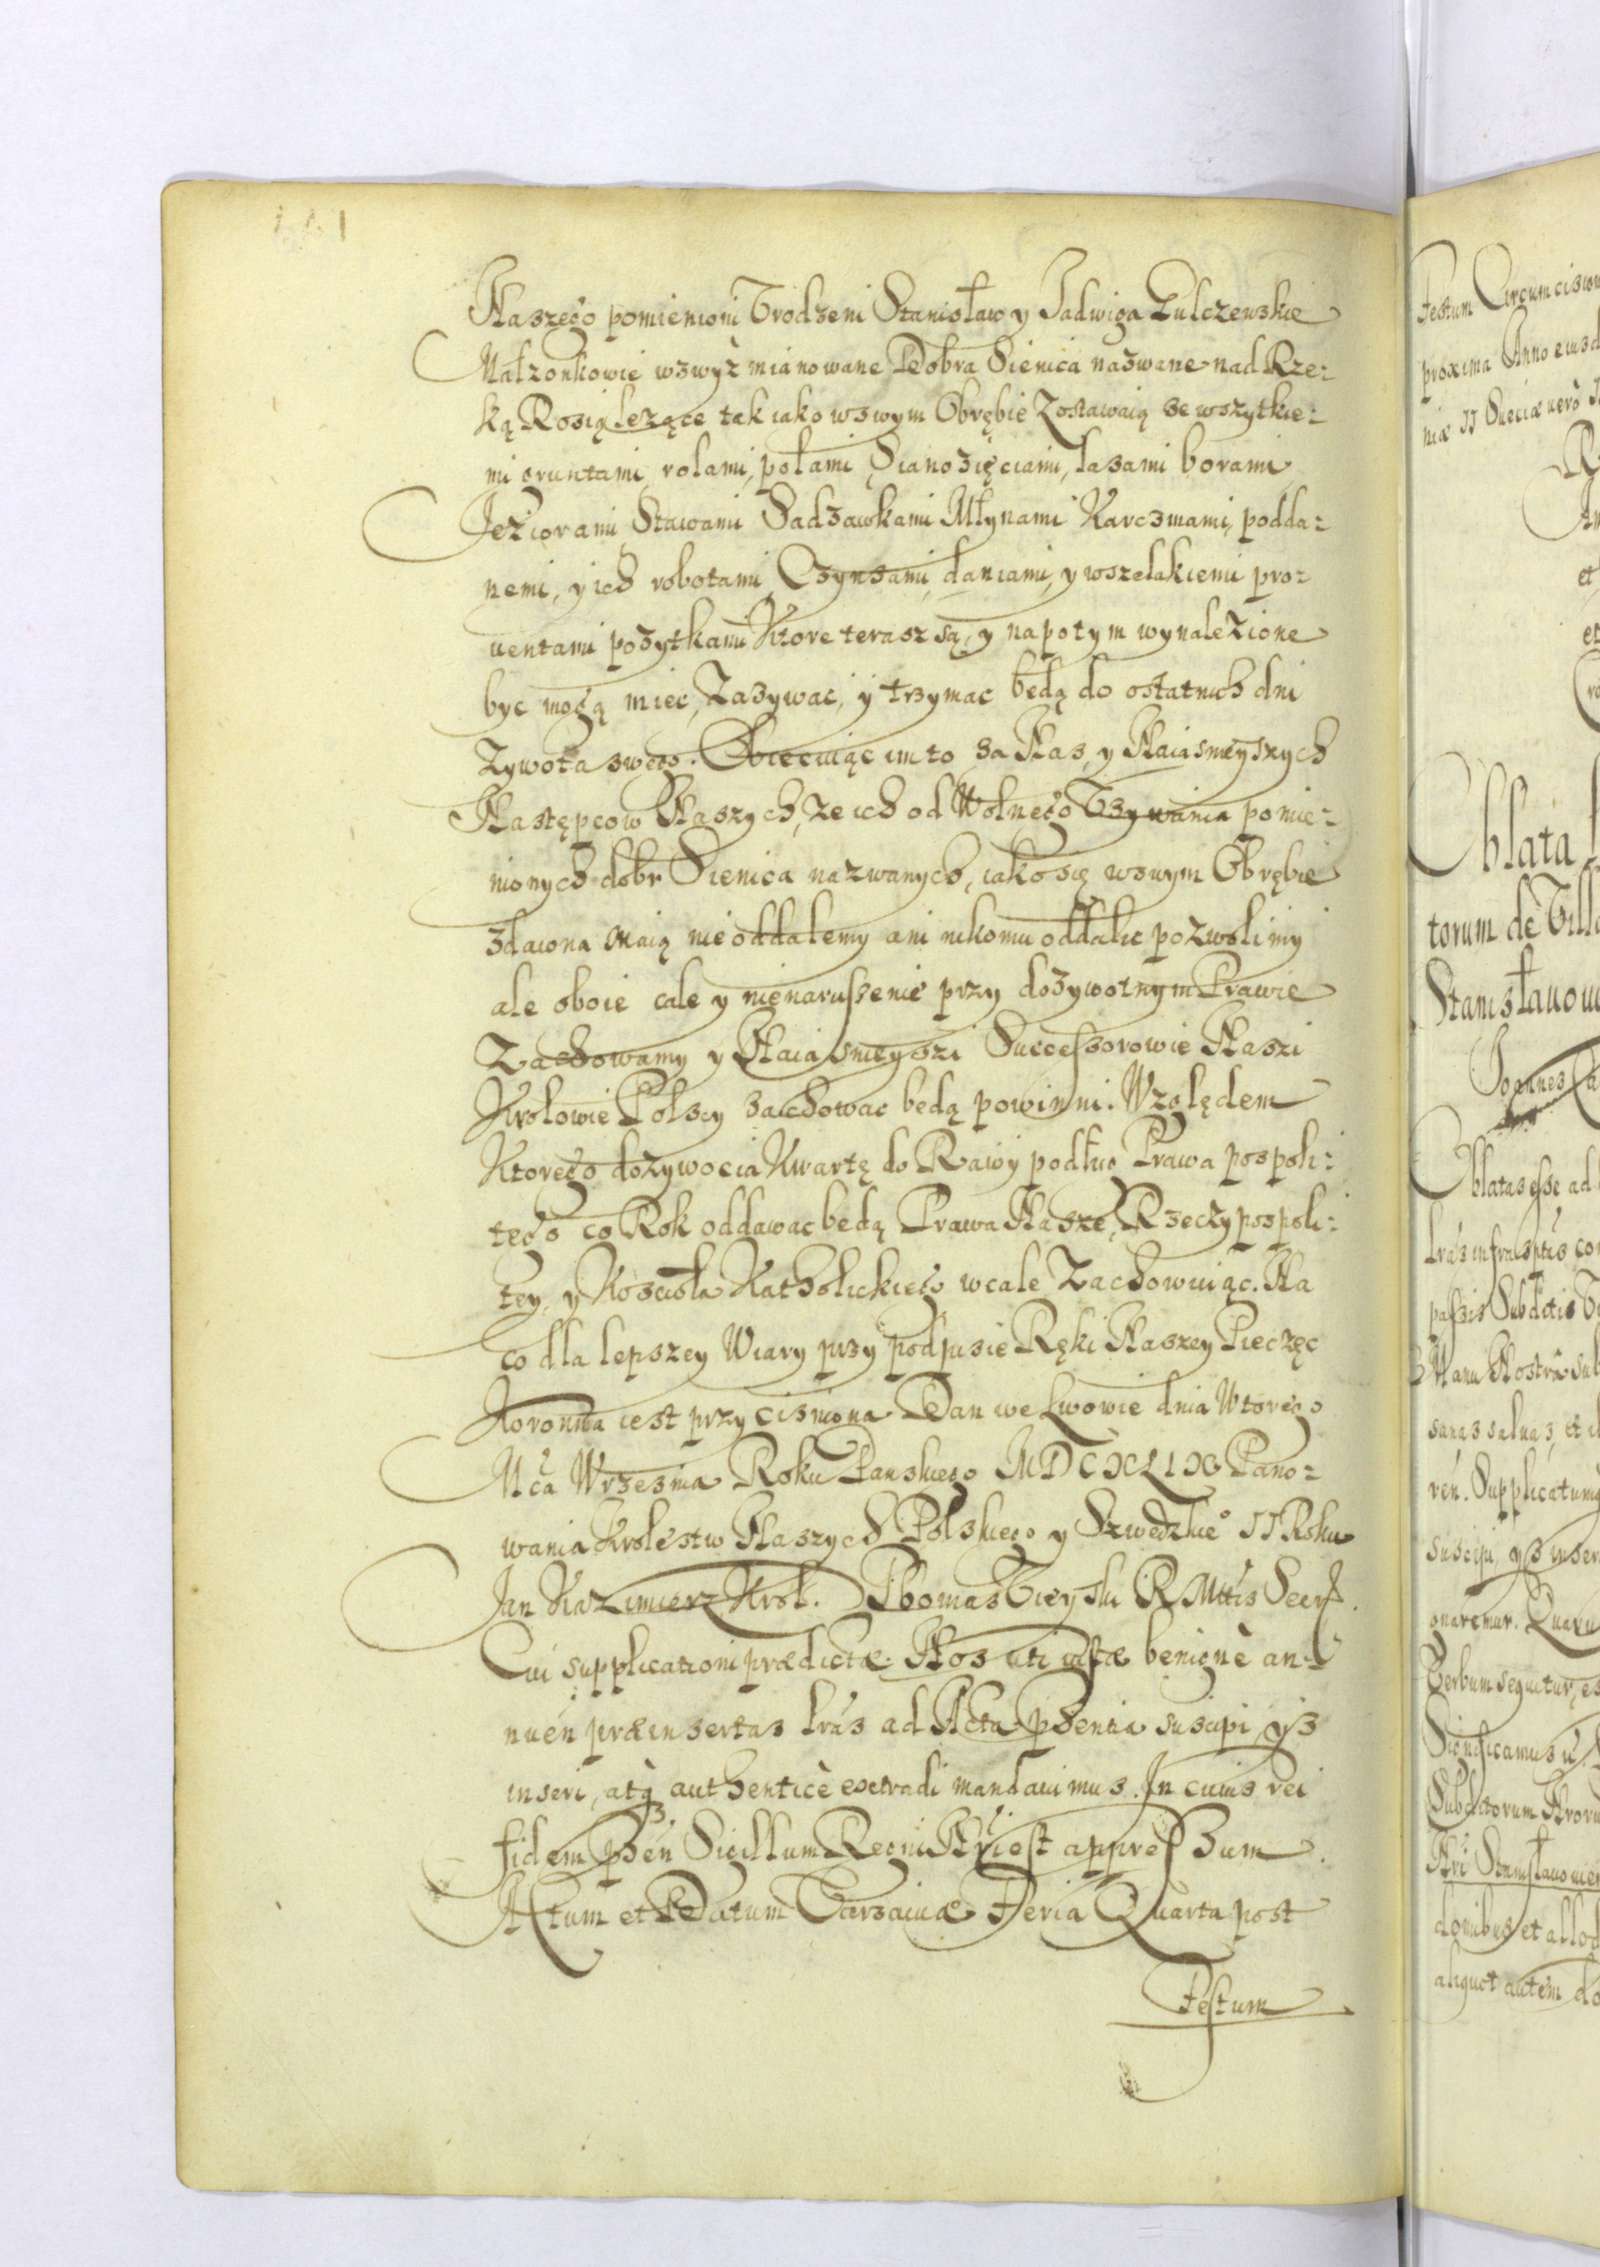 Naszego pomienioni Vrodzeni Stanisław y Jadwiga Zulczewskie
Małzonkowie wzwyż mianowane Dobra Sienica nazwane nad Rze:
ką Rosią lezące tak iako wswym Obrębie zostawaią ze wszytkie:
mi gruntami, rolami, polami, Sianozięciami, lasami borami
Jeziorami Stawami Sadzawkami Młynami Karczmami, podda:
nemi, y ich robotami, Czynszami, daniami, y wszelakiemi pro:
uentami pozytkami Ktore terasz są, y napotym wynalezione
byc mogą miec, Zazywac, y trzymac będą do ostatnich dni
Zywota swego. Obiecuiąc im to za Nas, y Naiasnieyszych
Następcow Naszych, ze ich od Wolnego Vzywania pomie:
nionych dobr Sienica nazwanych, iako się wswym Obrębie
zdawna maią nie oddalemy ani nikomu oddalic pozwolimy
ale oboie cale y nienaruszenie przy dozywotnym Prawie
Zachowamy y Naiasnieyszi Successorowie Naszi
Krolowie Polscy zachowac będą powinni. Względem
Ktorego dozywocia Kwartę do Rawy podług Prawa pospoli:
tego co Rok oddawac będą Prawa Nasze, Rzeczypospoli:
tey, y Kosciola Katholickiego wcale Zachowuiąc. Na
co dla lepszey Wiary przy podpisie Ręki Naszey Pieczęc
Koronna iest przycisniona Dan we Lwowie dnia Wtorego
Mca Wrzesnia Roku Panskiego MDCXLIX Pano:
wania Krolestw Naszych Polskiego y Szwedzkie° II Roku
Jan Kazimierz Krol. Thomas Vieyski R Mttis Secr.
Cui supplicationi prædictæ Nos uti iustæ benignè an:
nuen præinsertas lras ad Acta pñtia suscipi, ÿs
inseri, atq₃ authenticè extradi mandauimus. In cuius rei
fidem pñtn Sigillum Regni Nri est appressum.
Actum et Datum Varsauiæ Feria Quarta post
Festum
Festum Circumcisio
proxima Anno eiusd
niæ II Sueciæ uerò
et
et
Oblata
torum de Villa
Stanisłauow
Joannes Ca
Oblatas esse ad
lras infrasptas con
passis Subditis
Manu Nostra sub
sanas saluas, et
ren. Supplicatumq
suscipi, ÿs inser
onaremur. Quaru
Verbum sequitur, es
Significamus
Subditorum Nroru
Nri Stanisłauowien
domibus et allod
aliquot autem do